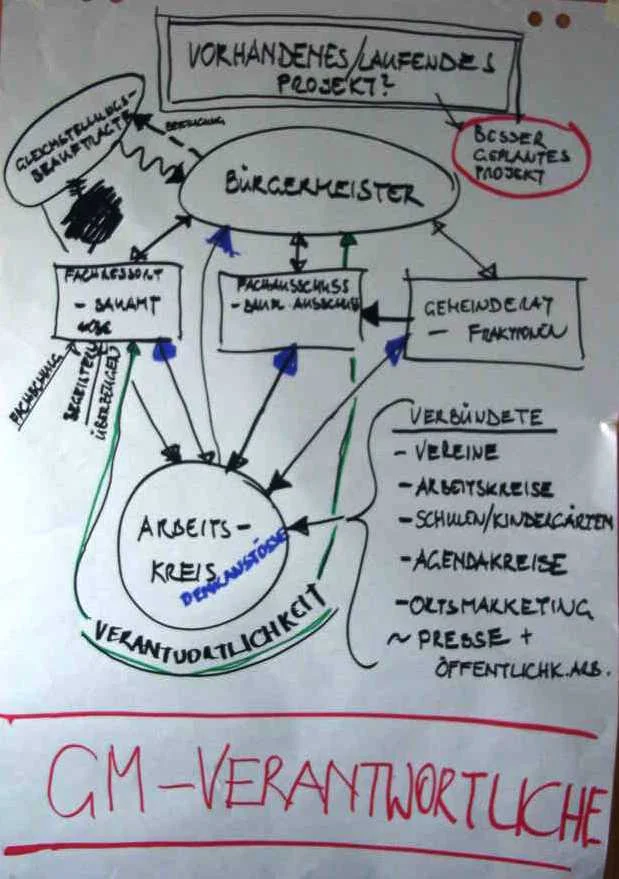 VORHANDENES/LAUFENDES
PROJEKT?
BESSER
GEPLANTES
PROJEKT
GLEICHSTELLUNGS-
BEAUFTRAGTE
BÜRGERMEISTER
FACHRESSORT
- BAUAMT
FACHAUSSCHUSS
- BAUR. AUSSCHUSS
GEMEINDERAT
- FRAKTIONEN
BEGEISTERN
ÜBERZEUGEN
VERBÜNDETE
- VEREINE
- ARBEITSKREISE
- SCHULEN/KINDERGÄRTEN
- AGENDAKREISE
- ORTSMARKETING
~ PRESSE +
ÖFFENTLICHK.ARB.
ARBEITS-
KREIS
DENKANSTÖSSE
VERANTWORTLICHKEIT
GM-VERANTWORTLICHE